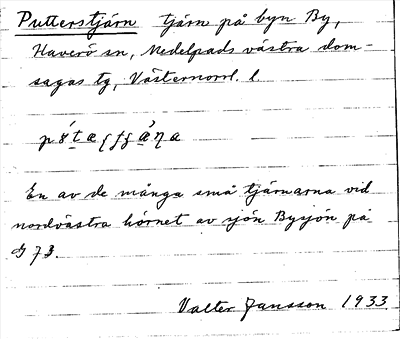 Putterstjärn tjärn på byn By,
Haverö sn, Medelpads västra dom-
sagas tg, Västernorrl. l.
En av de många små tjärnarna vid
nordvästra hörnet av sjön Bysjön på
73.
Valter Jansson 1933